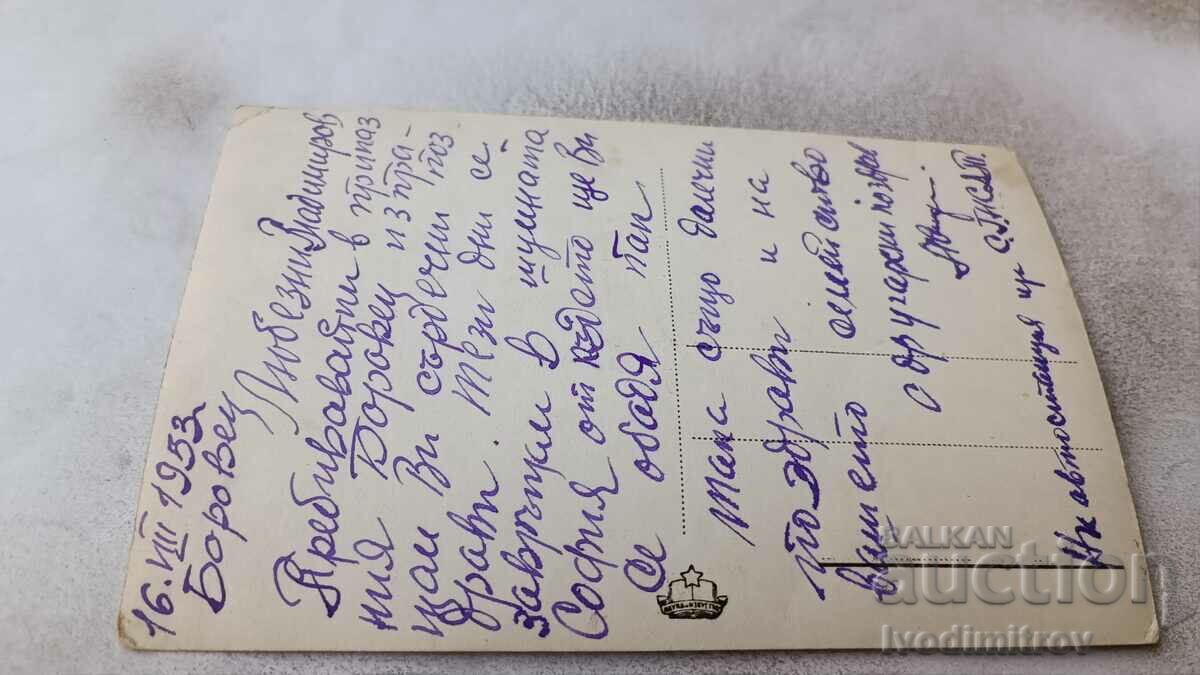 16.VIII 1953
Боровец
Любезни Владимиров
Пребивавайки в
ния Боровец изпра-
щам Ви сърдечни поз
драви. Тези дни се
завръщам в шумната
София от където ще ви
се обадя пак
Така също далечни
поздрави и на
вашето семейство
с другарски поздрав
Ик автостанция
BALKAN
auction
Ivodimitrov